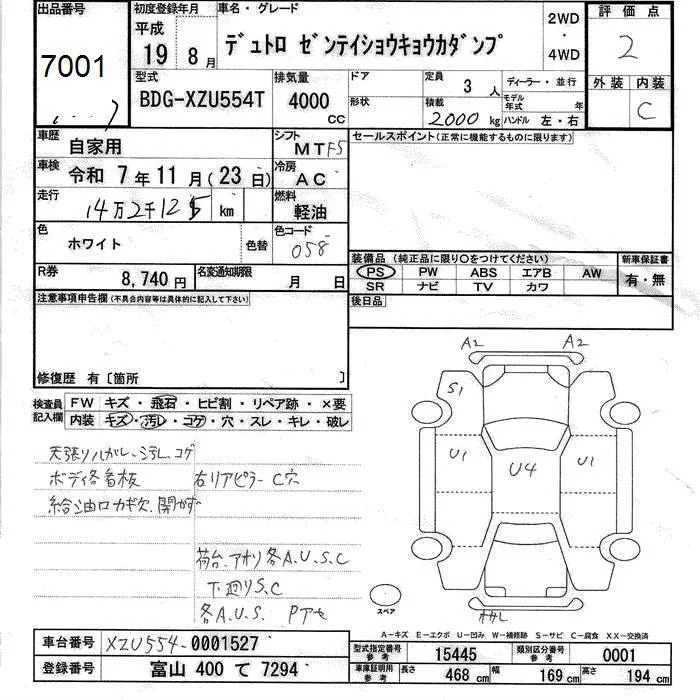 出品番号 初度登録年月 車名・グレード 評価点
7001 平成 19 8月 デュトロ ゼンテイショウキョウカダンプ 2WD ・ 4WD 2
型式 排気量 ドア 定員 3人 ディーラー・並行 外装 内装
BDG-XZU554T 4000 CC 形状 積載 2000 kg モデル年式 年 ハンドル 左・右 C
車歴 自家用 シフト MT F5 セールスポイント(正常に機能するものに限ります)
車検 令和 7年 11月 (23日) 冷房 AC
走行 14万2千12 km 燃料 軽油
色 ホワイト 色替 色コード 058
装備品 (純正品に限り○をつけてください) 新車保証書
R券 8,740円 名変通知期限 月 日 PS PW ABS エアB AW 有・無
SR ナビ TV カワ
注意事項申告欄(不具合内容等は具体的に記入して下さい) 後日品
修復歴 有〔箇所 〕
検査員記入欄 FW キズ・飛石・ヒビ割・リペア跡・×要
内装 キズ・汚レ・コゲ・穴・スレ・キレ・破レ
A2 A2
S1
U1 U4 U1
天張りハガレ、シミ、コゲ
ボディ各看板 右リアピラー C穴
給油口カギ欠、開かず
荷台、アオリ各A.U.S.C
下廻りS.C
各A.U.S. Pアセ
スペア
A-キズ E-エクボ U-凹み W-補修跡 S-サビ C-腐食 XX-交換済
車台番号 XZU554-0001527 型式指定番号 参考 15445 類別区分番号 参考 0001
登録番号 富山 400 て 7294 車庫証明用 参考 長さ 468 cm 幅 169 cm 高さ 194 cm